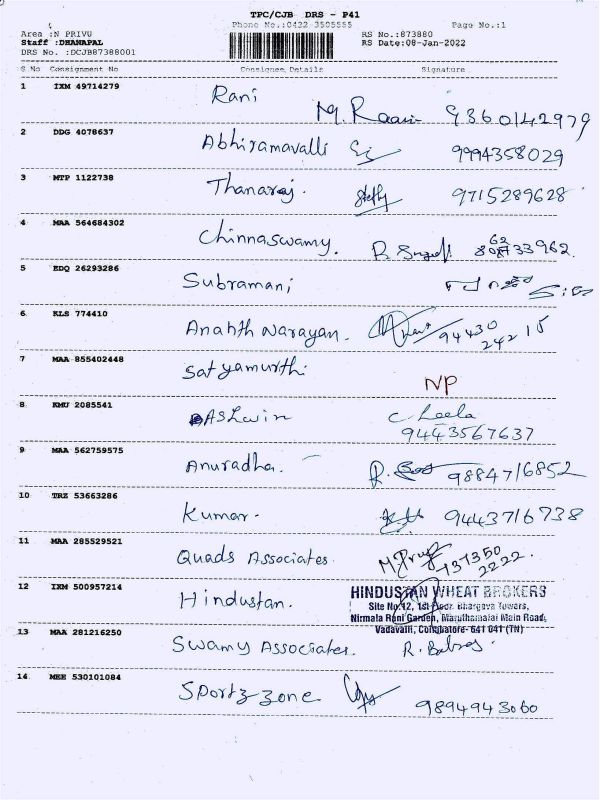 TPC/CJB DRS - P41
Phone No.:0422 3505555 Page No.:1
Area :N PRIVU RS No.:873880
Staff :DHANAPAL RS Date:08-Jan-2022
DRS No. :DCJB87388001
S No Consignment No Consignee Details Signature
1 IXM 49714279 Rani M. Raani 9360142979
2 DDG 4078637 Abhiramavalli 9994358029
3 MTP 1122738 Thanaraj. 9715289628
4 MAA 564684302 Chinnaswamy.
5 EDQ 26293286 Subramani
6 KLS 774410 Ananth Narayan. 94430
24215
7 MAA 855402448 Satyamurthi NP
8 KMU 2085541 Ashwin C. Leela
9443567637
9 MAA 562759575 Anuradha. 9884716852
10 TRZ 53663286 Kumar. 9443716738
11 MAA 285529521 Quads Associates 137350
2222.
12 IXM 500957214 Hindustan.
HINDUSTAN WHEAT BROKERS
Site No:12, 1st Floor, Bhargava Towers,
Nirmala Rani Garden, Maruthamalai Main Road,
Vadavalli, Coimbatore- 641 041 (TN)
13 MAA 281216250 Swamy Associates.
14 MEE 530101084 Sportz zone 9894943060